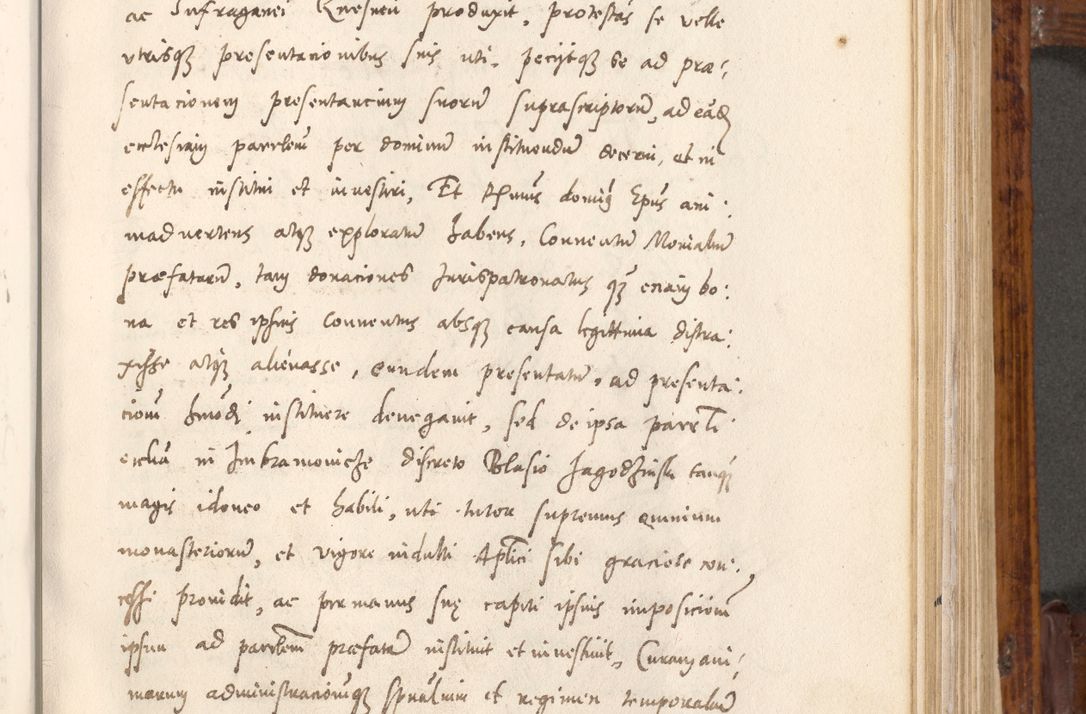 ac Suffraganei Knesneñ produxit, protestas se velle
vtrisq3 presentacionibus suis uti, peciitq3 se ad præ:
sentacionem presentancium suorũ suprascriptorũ, ad eãd
ecclesiam parrlem̃ per dominũ instituendũ decerni, et in
effectu institui et investiri, Et Rmus domiq Epus ani:
madvertens atq3 exploratũ habens, Conventũ Monialiũ
præfatarũ, tam donaciones Jurispatronatus q3 eciam bo:
na et res ipsius conventus absq3 causa legittima distra:
xisse atq3 alienasse, eundem presentatũ, ad presenta:
cionẽ hmodi instituere denegavit, sed de ipsa parrli
ecclia in Imbramowicze discreto Blasio Jagodzinski tanq3
magis idoneo et habili, uti tutor supremus omnium
monasteriorũ, et vigore indulti Aplici sibi graciose con:
cessi providit, ac per manus suę capiti ipsius imposicionẽ
ipsum ad parrlem præfatã instituit et investivit, Curam ani:
marum administracionẽq3 spũalium et regimen temporaliũ